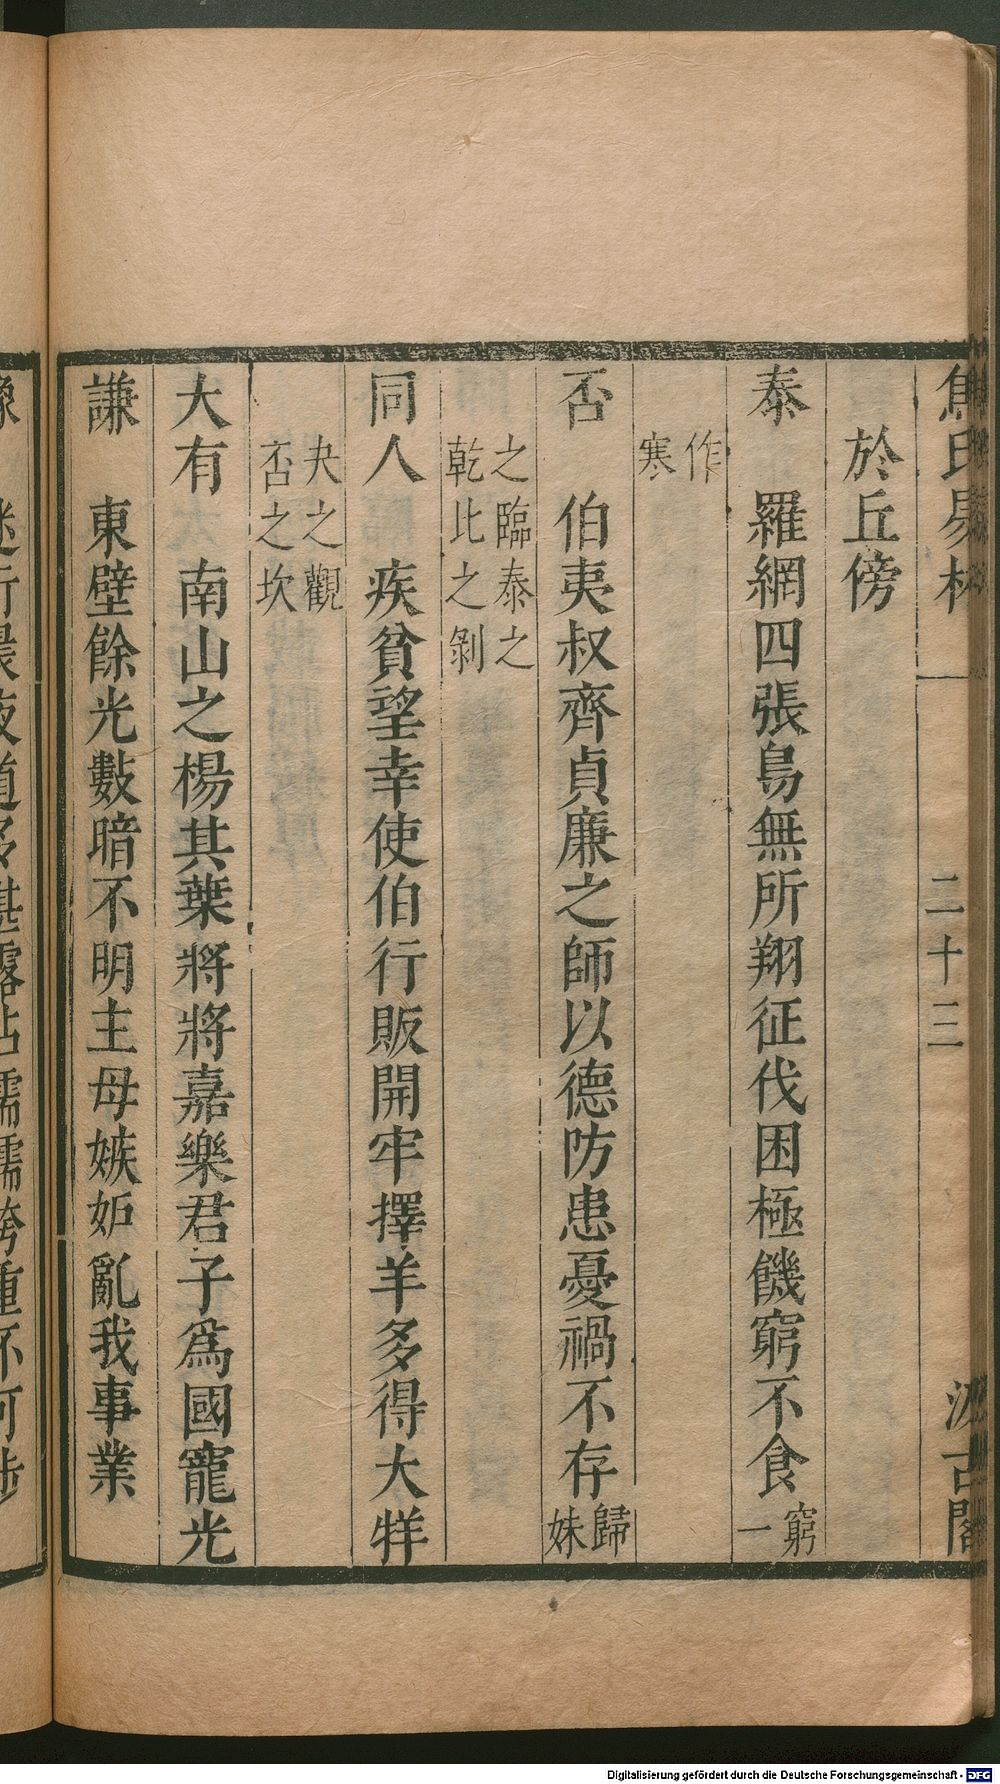 焦氏易林 一 二十三 汲古閣
於丘傍
泰 羅網四張鳥無所翔征伐困極饑窮不食 窮一
作寒
否 伯夷叔齊貞廉之師以德防患憂禍不存 歸妹
之臨泰之
乾比之剝
同人 疾貧望幸使伯行販開牢擇羊多得大牂
夬之觀
否之坎
大有 南山之楊其葉將將嘉樂君子爲國寵光
謙 東壁餘光數暗不明主母嫉妬亂我事業
迷行晨夜道多湛露沾濡濡袴重不可涉
Digitalisierung gefördert durch die Deutsche Forschungsgemeinschaft - DFG